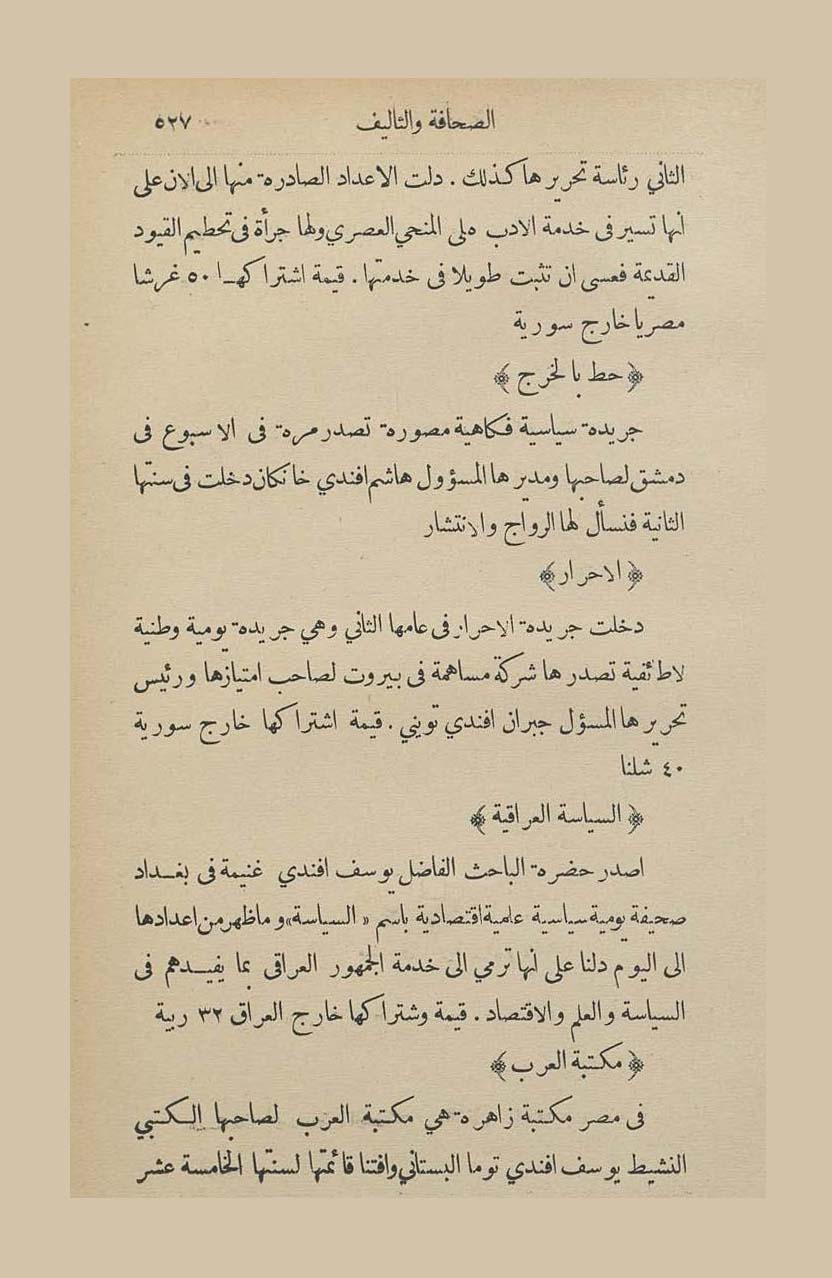 الصحافة والتاليف ٥٢٧
الثاني رئاسة تحريرها كذلك . دلت الاعداد الصادرة منها الى الان على
انها تسير فى خدمة الادب على المنحي العصري ولها جرأة فى تحطيم القيود
القديمة فعسى ان تثبت طويلا فى خدمتها . قيمة اشتراكهـا ٥٠ غرشا
مصريا خارج سورية
﴿ حط بالخرج ﴾
جريدة سياسية فكاهية مصورة تصدر مرة فى الاسبوع فى
دمشق لصاحبها ومديرها المسؤول هاشم افندي خانكان دخلت فى سنتها
الثانية فنسأل لها الرواج والانتشار
﴿ الاحرار ﴾
دخلت جريدة الاحرار فى عامها الثاني وهي جريدة يومية وطنية
لاطائفية تصدرها شركة مساهمة فى بيروت لصاحب امتيازها ورئيس
تحريرها المسؤل جبران افندي تويني . قيمة اشتراكها خارج سورية
٤٠ شلنا
﴿ السياسة العراقية ﴾
اصدر حضرة الباحث الفاضل يوسف افندي غنيمة فى بغـداد
صحيفة يومية سياسية علمية اقتصادية باسم « السياسة » وماظهر من اعدادها
الى اليوم دلنا على انها ترمي الى خدمة الجمهور العراقى بما يفيـدهم فى
السياسة والعلم والاقتصاد . قيمة وشتراكها خارج العراق ٣٢ ربية
﴿ مكتبة العرب ﴾
فى مصر مكتبة زاهرة هي مكتبة العرب لصاحبها الـكتبي
النشيط يوسف افندي توما البستاني وافتنا قائمتها لسنتها الخامسة عشر